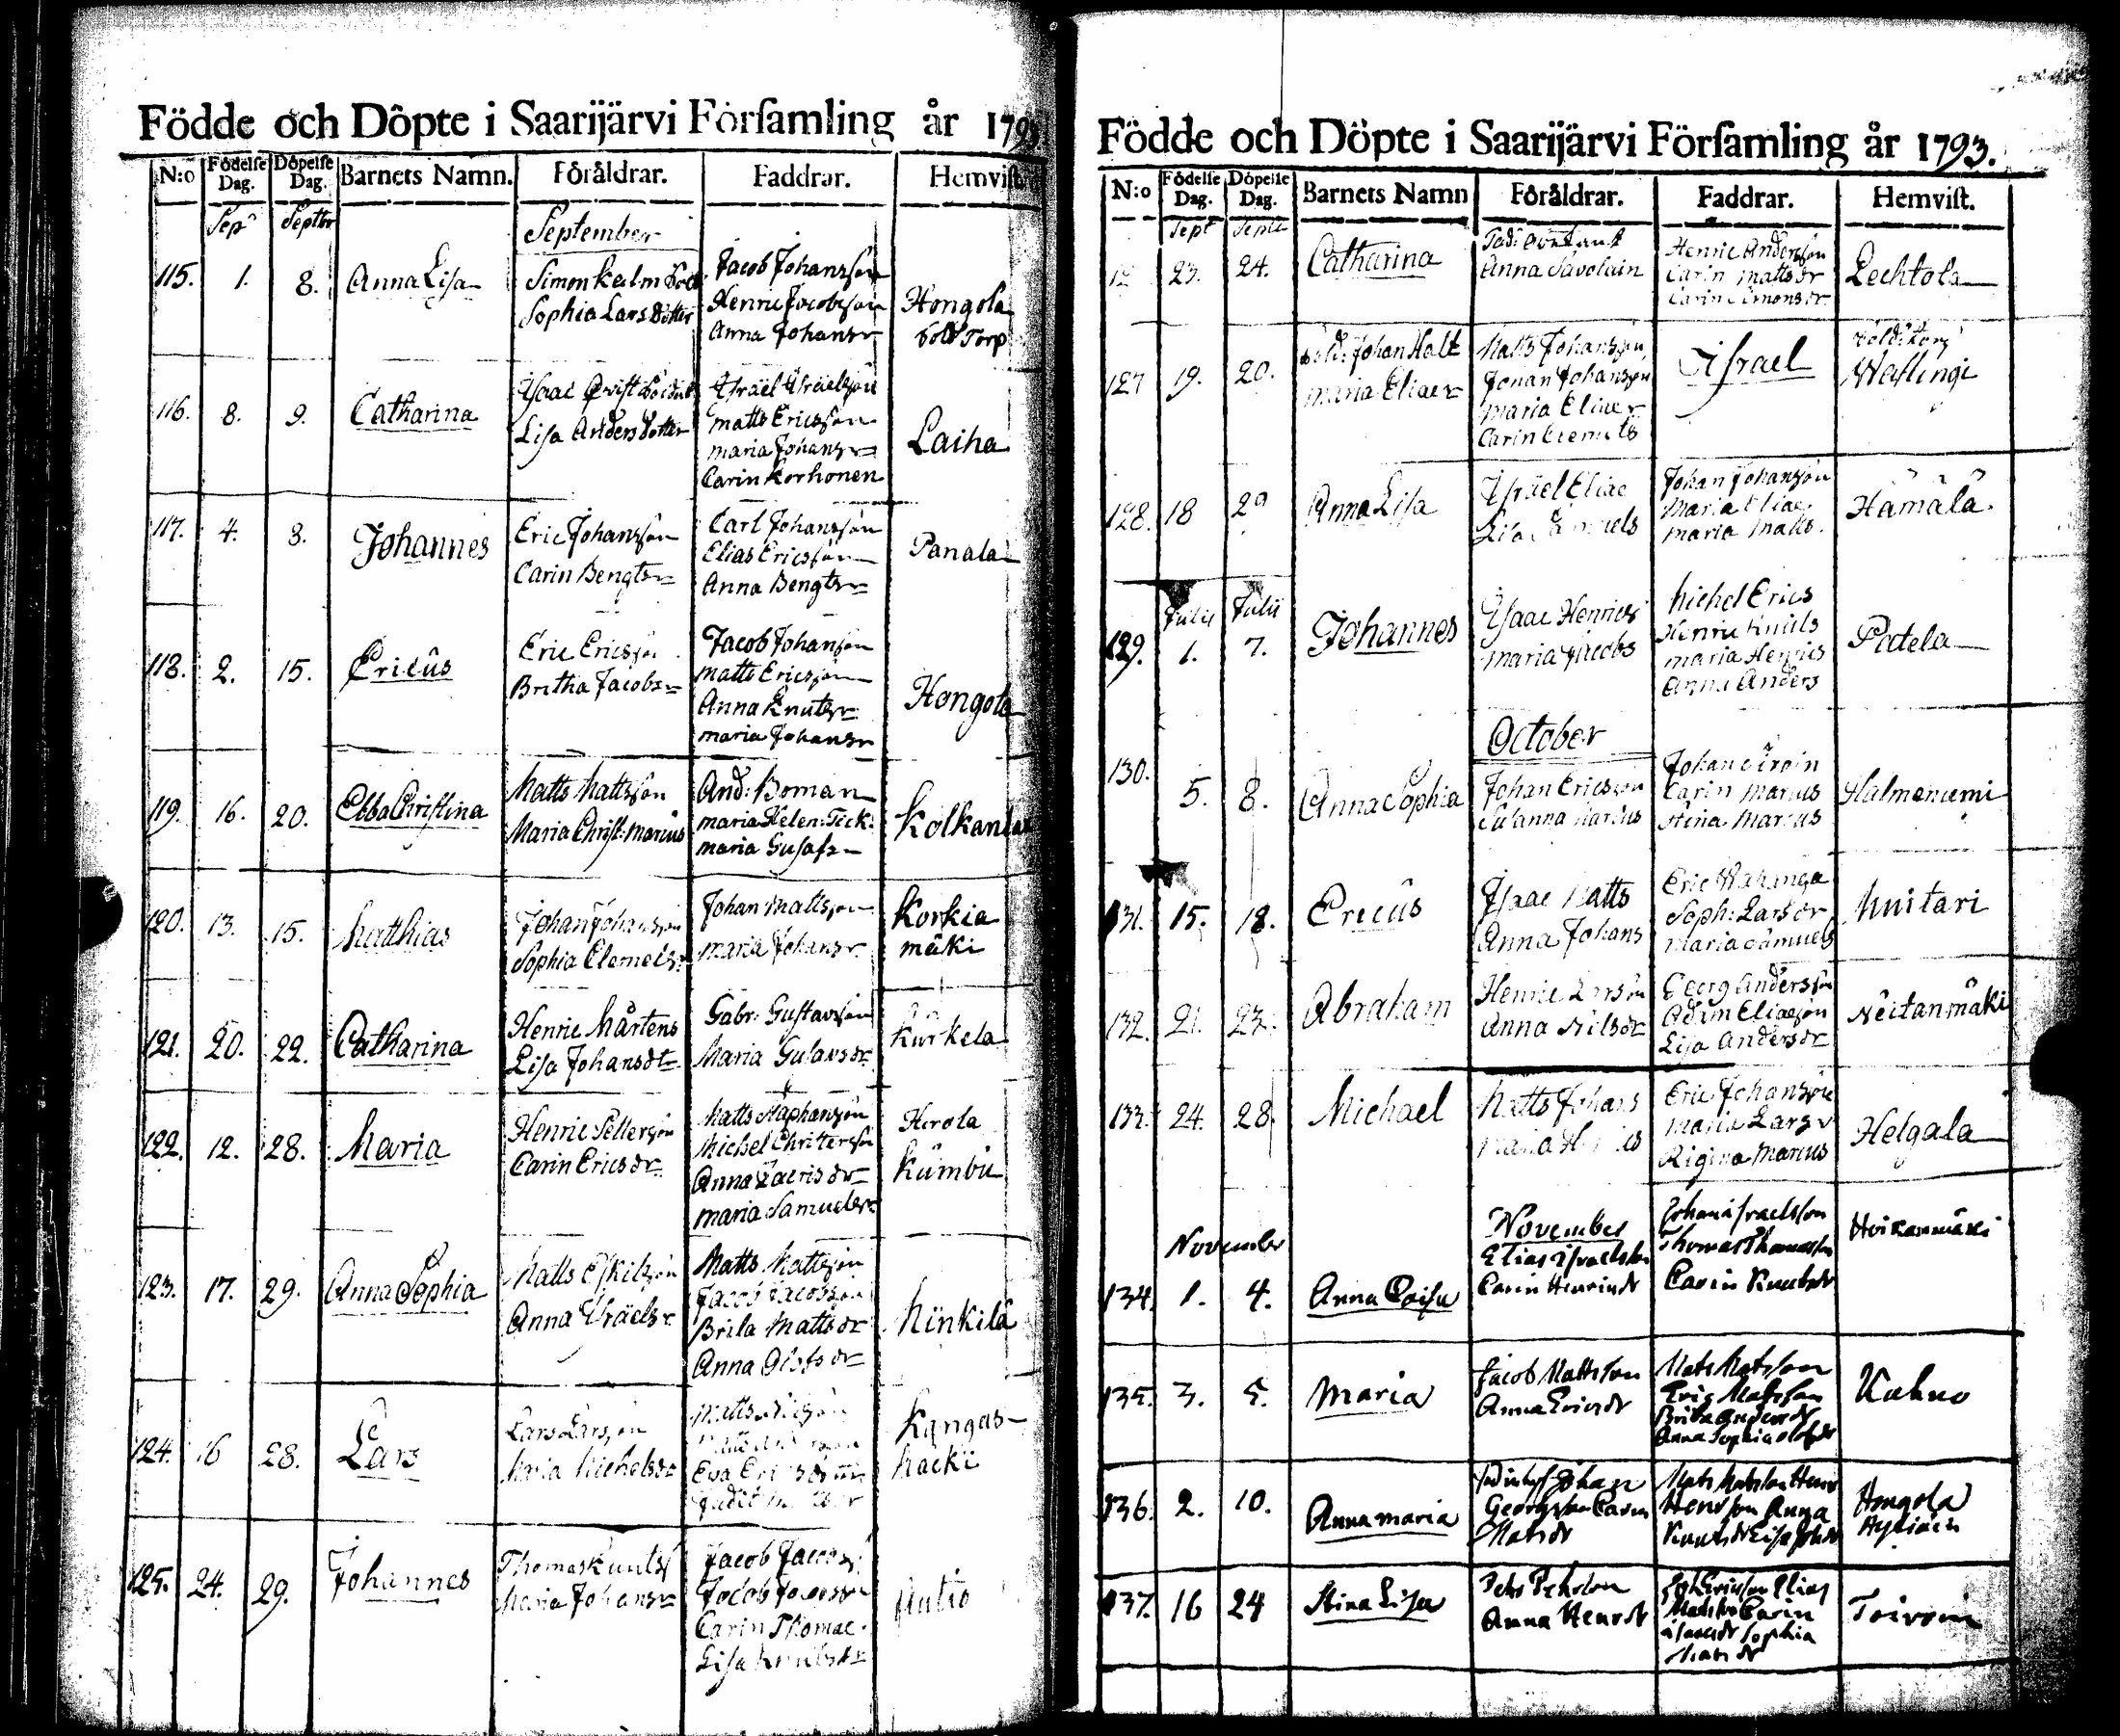 Födde och Döpte i Saarijärvi Församling år 1793
N:o Födelse Dag. Döpelse Dag. Barnets Namn. Föräldrar. Faddrar. Hemvist.
Sept Septbr September
115. 1. 8. Anna Lisa Simon Kalm Sold Jacob Johansson Hongola
Sophia Lars Dotter Henric Jacobsson Sold Torp
Anna Johansr
116. 8. 9. Catharina Isaac Qvist Israel Israelsson Laiha
Lisa Anders Dotter Matts Ericsson
Maria Johansr
Carin Korhonen
117. 4. 8. Johannes Eric Johansson Carl Johansson Panala
Carin Bengtsr Elias Ericsson
Anna Bengtsr
118. 2. 15. Ericus Eric Ericsson Jacob Johansson Hongola
Britha Jacobsr Matts Ericsson
Anna Knutsr
Maria Johansr
119. 16. 20. Ebba Christina Matts Mattsson And: Boman
Maria Christ: Marcus Maria Helen: Teck:
Maria Gusafs
120. 13. 15. Matthias Johan Johansson Johan Mattsson Korkia
Sophia Clemetsr Maria Johansr mäki
121. 20. 22. Catharina Henric Mårtens Gabr: Gustavsson Kurkela
Lisa Johansdr Maria Gusavsdr
122. 12. 28. Maria Henric Pettersson Matts Staphansson Herola
Carin Ericsdr Michel Christersson Kumbu
Anna Zacrisdr
Maria Samuelsr
123. 17. 29. Anna Sophia Matts Eskilsson Matts Mattsson
Anna Israelsr Jacob Jacobsson
Brita Mattsdr
Anna Olofsdr
124. 16 28. Lars Lars Larsson Kangas
Maria Michelsdr Eva
125. 24. 29. Johannes Thomas Knuts Jacob Jacobs Autio
Maria Johansr Jacob Jacobsson
Carin Thomae
Lisa Knutsdr
Födde och Döpte i Saarijärvi Församling år 1793.
N:o Födelse Dag. Döpelse Dag. Barnets Namn Föräldrar. Faddrar. Hemvist.
Sept Septe
23. 24. Catharina Henric Andersson Lechtola
Anna Savolain Carin Mattsdr
Carin Simonsdr
127 19. 20. Sold: Johan Halt Matts Johansson Israel
Maria Eliaer Johan Johansson
Maria Eliaer
Carin
128. 18 29 Anna Lisa Israel Eliae Johan Johansson Hämälä
Maria Eliae
Maria Matts
Julii Julii
129. 1. 7. Johannes Isaac Henrics Michel Erics
Maria Jacobs Henric
Maria Henrics
Anna Anders
October
130. 5. 8. Anna Sophia Johan Ericsson Johan Halmeniemi
Susanna Marcus Carin Marcus
Stina Marcus
131. 15. 18. Ericus Isaac Matts Eric Muitari
Anna Johans Soph: Larsdr
Maria Samuels
132. 21. 23. Abraham Henric Larsson Georg Andersson Neitanmäki
Anna Nilsdr Adam Eliaeson
Lisa Andersdr
133. 24. 28. Michael Matts Johans Eric Johansson Helgala
Maria Maria Larsr
Regina Marcus
November November
134. 1. 4. Anna Caisa Elias Israelsson Johan Israelsson
Carin Henricdr Thomas Thomasson
Carin Knutsdr
135. 3. 5. Maria Jacob Mattsson Mats Matsson
Anna Ericsdr Eric Matsson
Brita Andersdr
Anna Sophia Olofsdr
136. 2. 10. Anna Maria Johan Mats Matsson Hongola
Georgson Carin Henrson Anna
Matsdr Knutsdr Lisa Johsdr
137. 16 24 Stina Lisa Pehr Pehrson Elias
Anna Henrsdr Matsson Carin
Isaacsdr Sophia
Matsdr